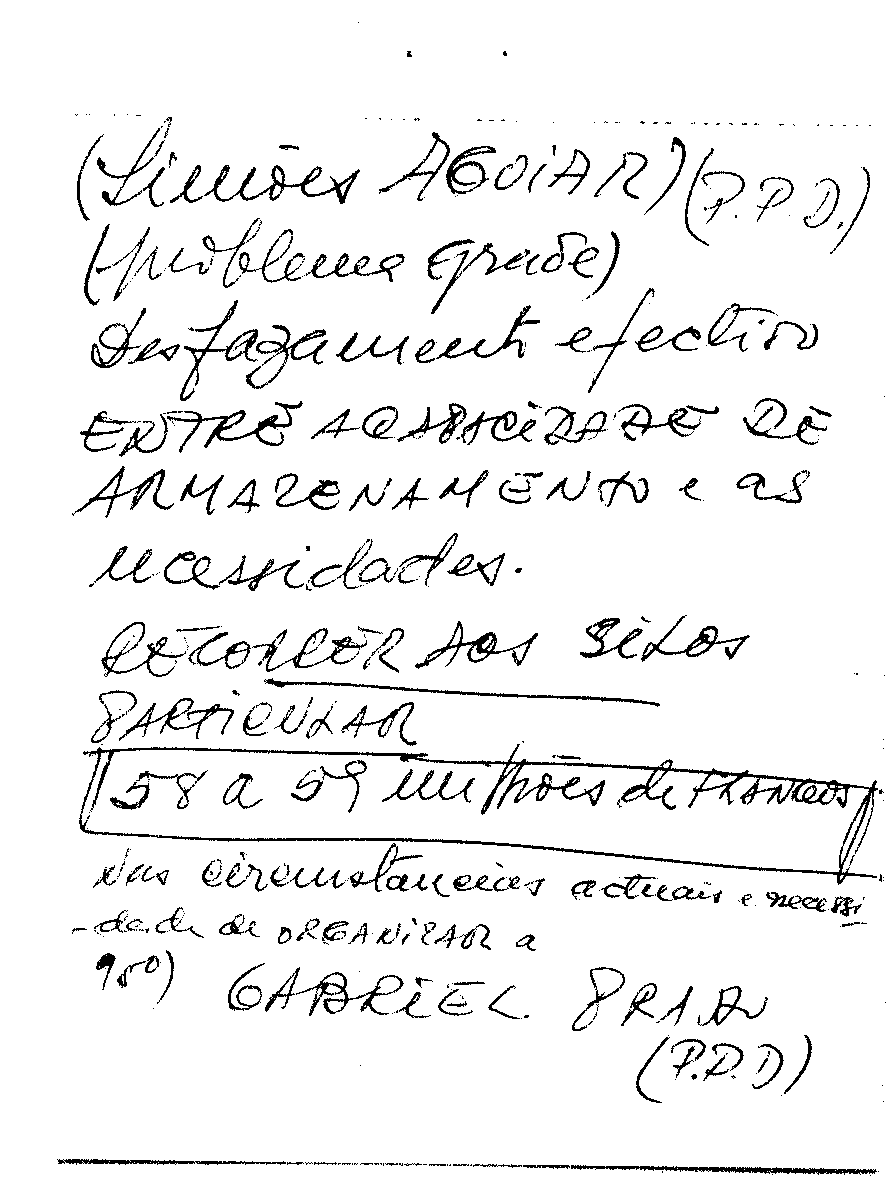 (Simões AGUIAR) (P.P.D.)
(problema grade)
Desfazamento efectivo
ENTRE A CAPACIDADE DE
ARMAZENAMENTO e as
necessidades.
RECORRER AOS SILOS
PARTICULAR
58 a 59 milhões de
Nas circunstancias actuais e necessi
-dade de ORGANIZAR a
GABRIEL
(P.P.D)